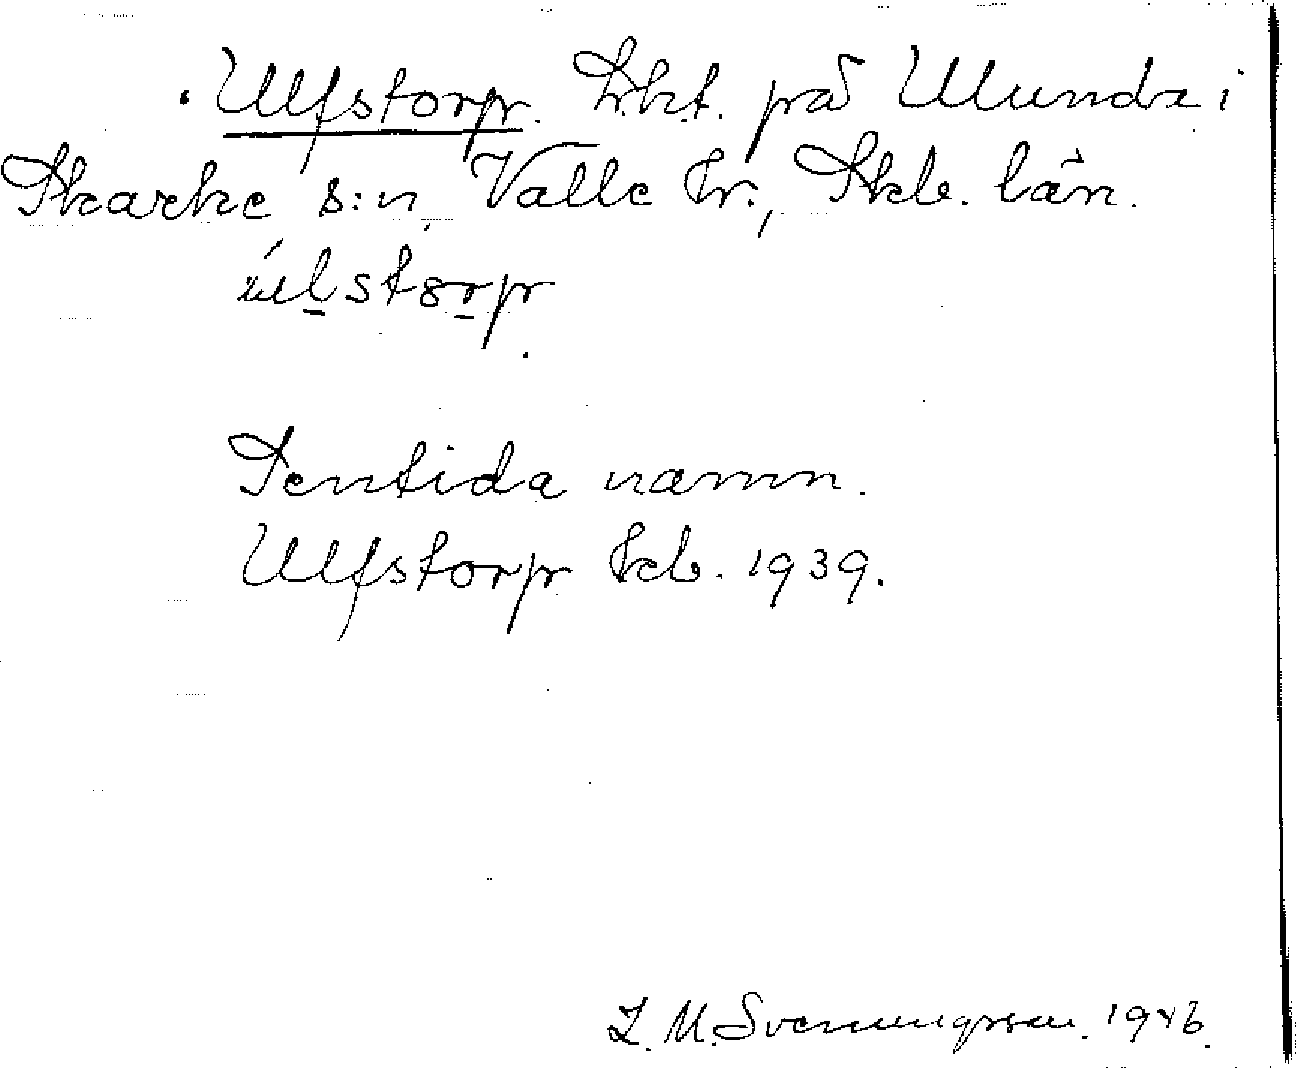 Ulfstorp. Lht. på Ulunda i
Skarke s:n, Valle hr., Skb. län.
ùlstorp
Sentida namn.
Ulfstorp kb. 1939.
L. M. Svenungsson. 1946.